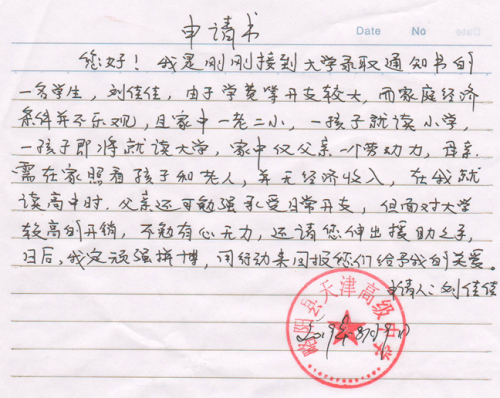 申请书
Date No
Date
您好！我是刚刚接到大学录取通知书的
一名学生，刘佳佳，由于学费等开支较大，而家庭经济
条件并不乐观，且家中一老二小，一孩子就读小学，
一孩子即将就读大学，家中仅父亲一个劳动力，母亲
需在家照看孩子和老人，并无经济收入，在我就
读高中时，父亲还可勉强承受日常开支，但面对大学
较高的开销，不免有心无力，还请您伸出援助之手，
日后，我定顽强拼搏，用行动来回报您们给予我的关爱。
申请人：刘佳佳
略阳县天津高级中学